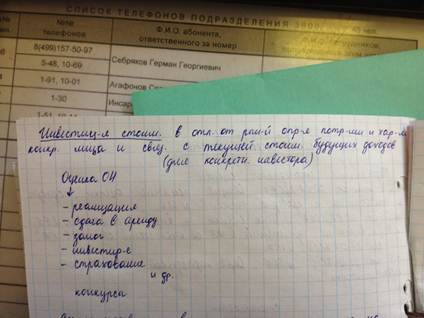 СПИСОК ТЕЛЕФОНОВ ПОДРАЗДЕЛЕНИЯ
№№ телефонов
Ф.И.О. абонента, ответственного за номер
8(499)157-50-97
Себряков Герман Георгиевич
5-48, 10-69
1-91, 10-01
Агафонов
1-30
Инсар
Инвестиц-я стоим. в отл. от рын-й опр-я потр-ми и хар-ми
конкр. лица и связ. с текущей стоим. будущих доходов
(для конкретн. инвестора)
Оценка ОН
↓
- реализация
- сдача в аренду
- залог
- инвестир-е
- страхование
и др.
конкурсы